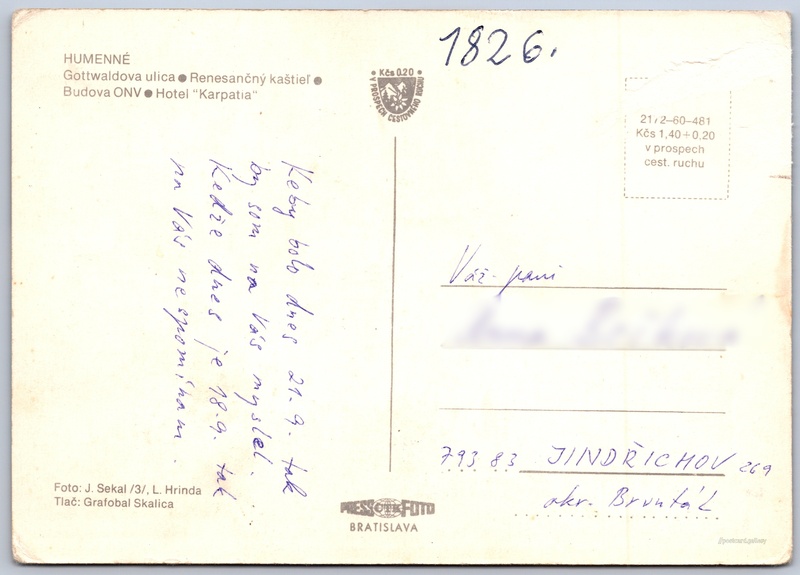 1826.
HUMENNÉ
Gottwaldova ulica ● Renesančný kaštieľ ●
Budova ONV ● Hotel "Karpatia"
• Kčs 0.20 •
V PROSPECH CESTOVNÉHO RUCHU
21/2–60–481
Kčs 1,40 + 0,20
v prospech
cest. ruchu
Keby bolo dnes 21. 9. tak
by som na Vás myslel.
Kedže dnes je 18. 9. tak
na Vás nespomínam.
Váž. pani
793 83 JINDŘICHOV 269
okr. Bruntál
Foto: J. Sekal /3/, L. Hrinda
Tlač: Grafobal Skalica
PRESSFOTO
BRATISLAVA